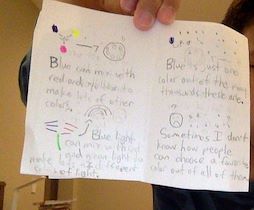 Blue can mix with
red and yellow to
make lots of other
colors.
Blue light
can mix with red
and green light to
make lots of different
of light.
Blue is just one
color out of the many
thousands there are.
Sometimes I don't
know how people
can choose a favorite
color out of all of them